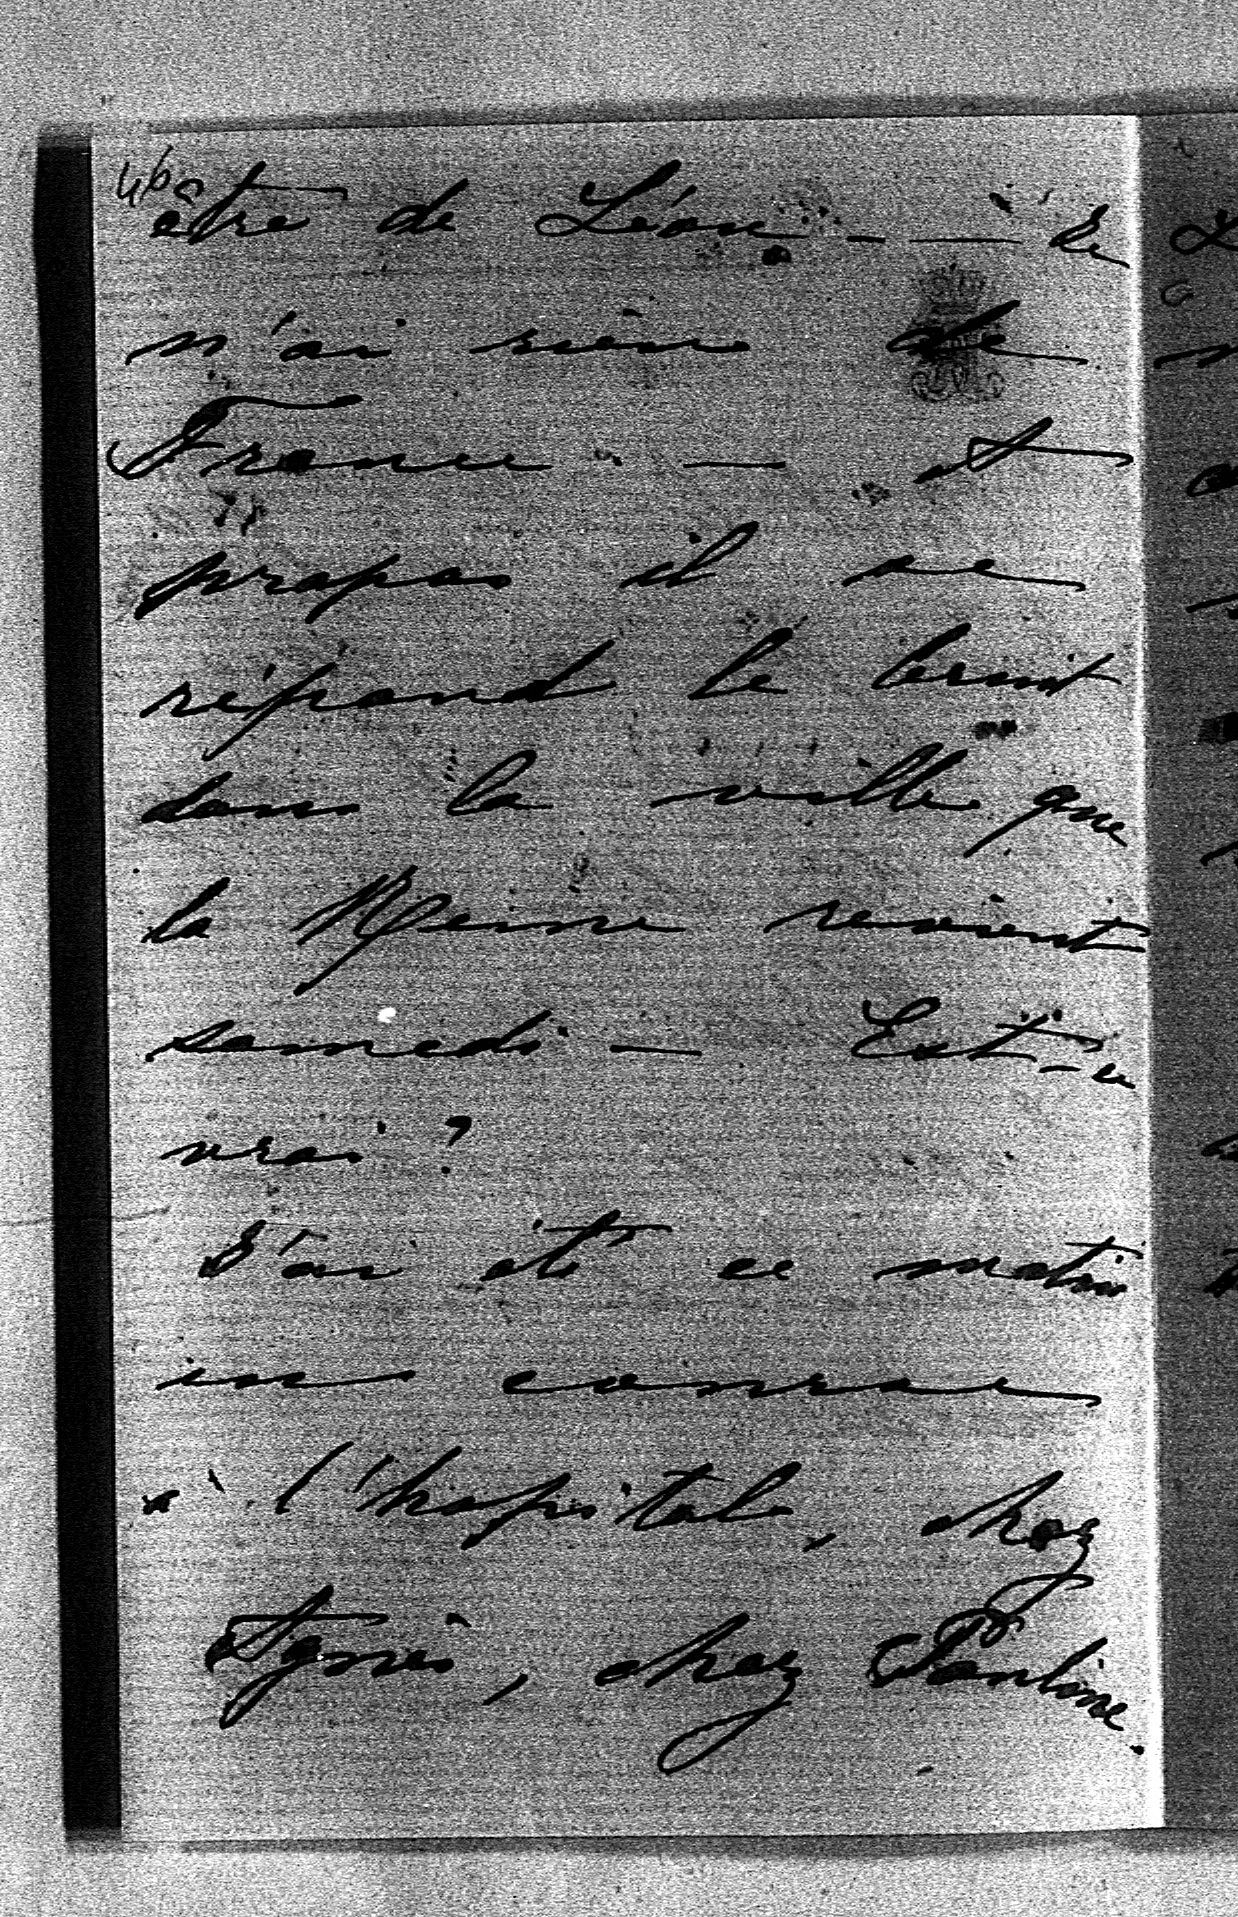 460
etre de Léon — — Je
n'ai rien de
France — A
propos il se
répand le bruit
dans la ville que
la Reine revient
samedi — Est-ce
vrai?
J'ai été ce matin
à l'hopital, chez
Agnès, chez Pauline.